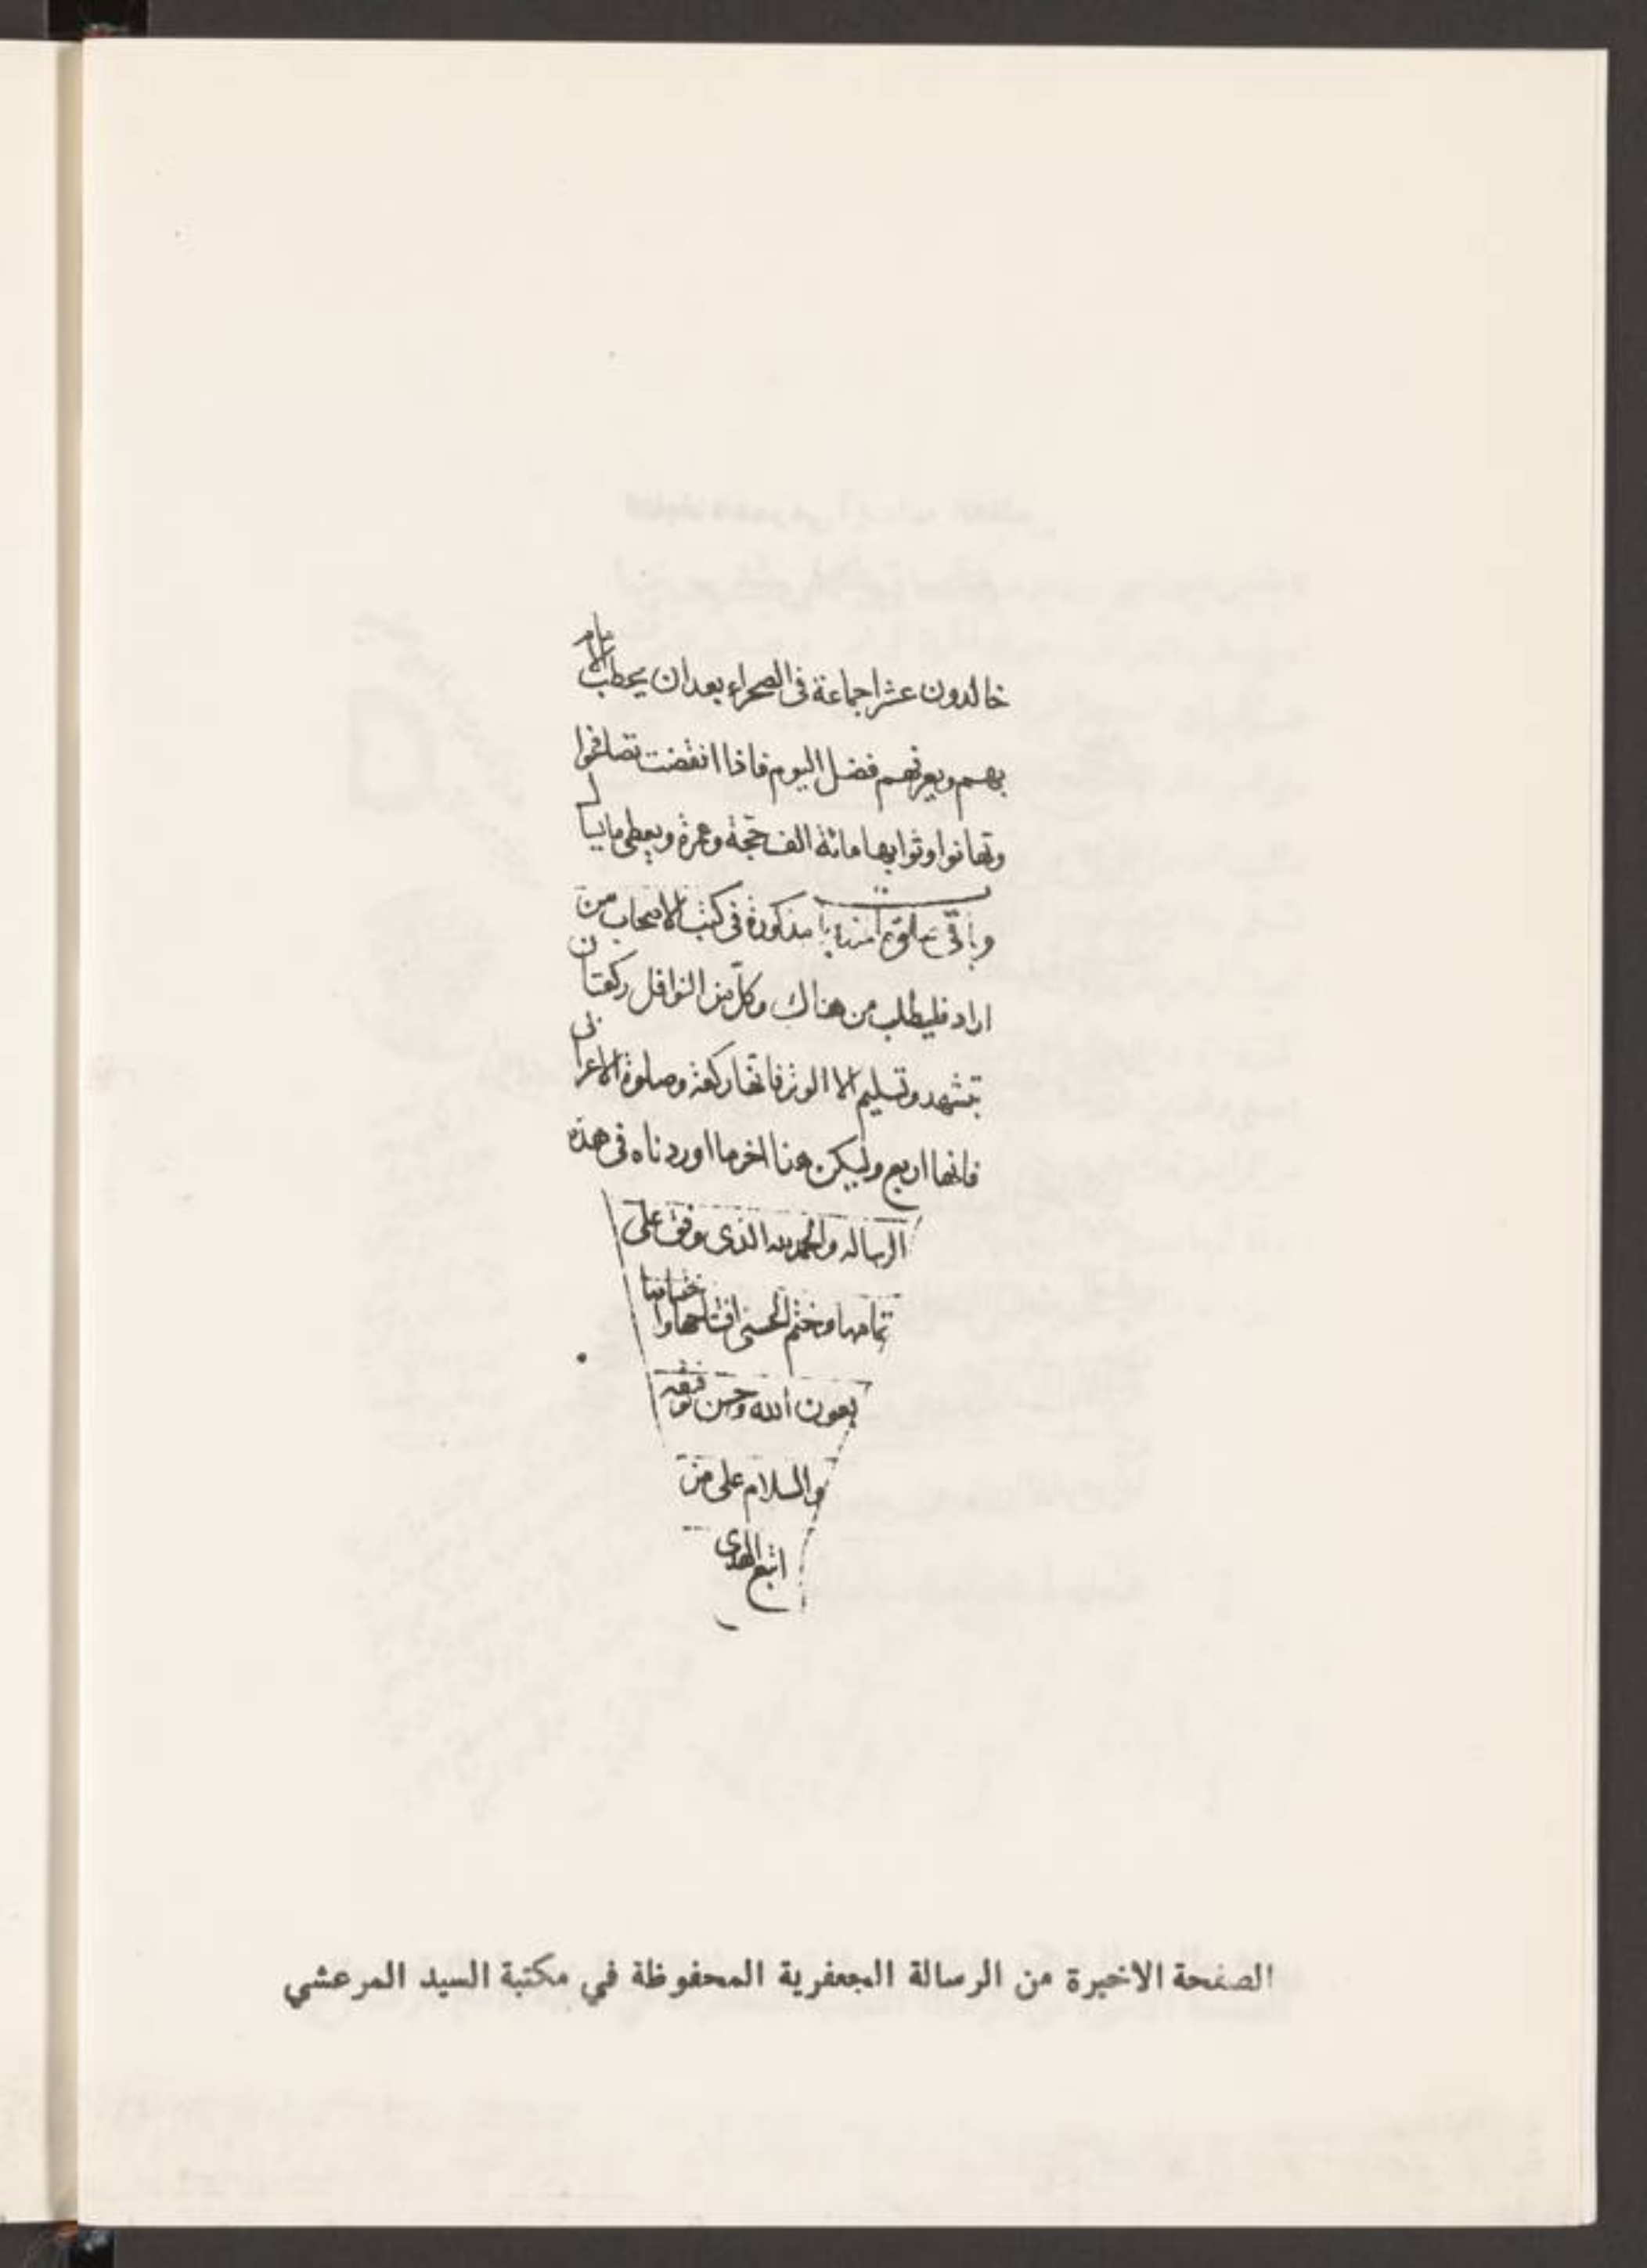 خالدون عشرا جماعة في الصحراء بعد ان يخطب الامام
بهم ويعرفهم فضل اليوم فاذا انقضت تصافحوا
وتهانوا وثوابها مائة الف حجة وعمرة ويعطى ما يسال
وباقي صلوة مذكورة في كتب الاصحاب من
اراد فليطلب من هناك وكل من النوافل ركعتان
بتشهد وتسليم الا الوتر فانها ركعة وصلوة الاعرابي
فانها اربع وليكن هذا اخر ما اوردناه في هذه
الرساله والحمد لله الذي وفق على
تمامها وختم بالحسنى افتتاحها واختتامها
بعون الله وحسن توفيقه
والسلام على من
اتبع الهدى
الصفحة الاخيرة من الرسالة الجعفرية المحفوظة في مكتبة السيد المرعشي